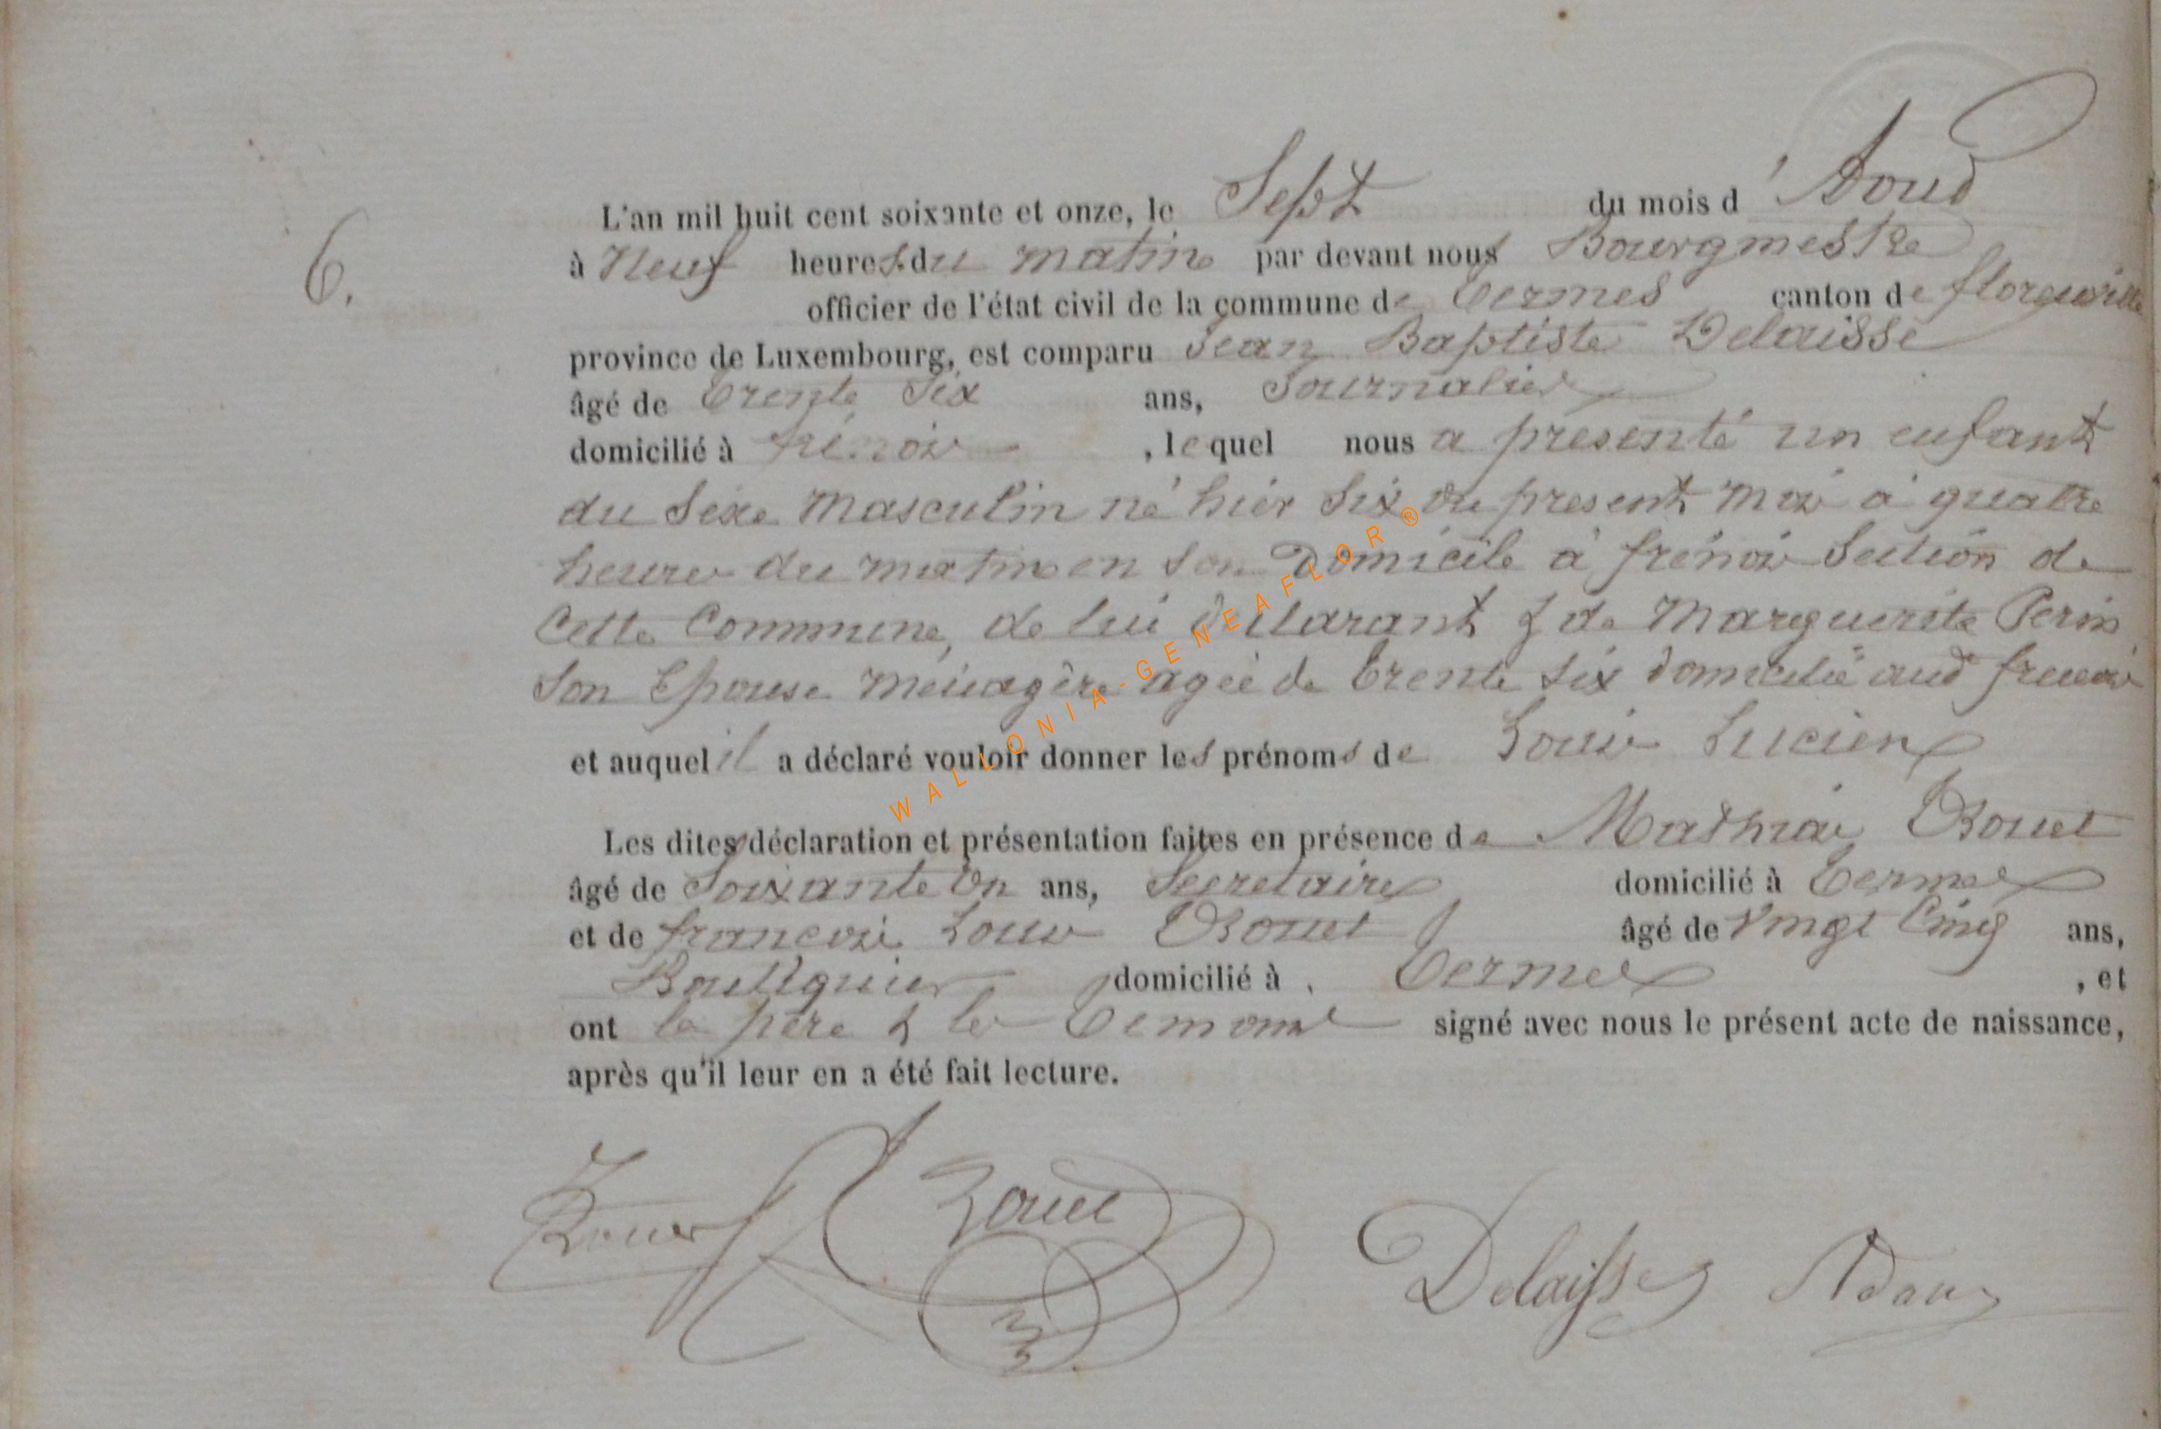 6.
L'an mil huit cent soixante et onze, le Sept du mois d'Aoud
à Neuf heures du matin par devant nous Bourgmestre
officier de l'état civil de la commune de Termes canton de florenville
province de Luxembourg, est comparu Jean Baptiste Delaisse
âgé de trente six ans, Journalier
domicilié à frénois, lequel nous a présenté un enfant
du sexe masculin né hier six du present mois à quatre
heures du matin en son Domicile à frénois Section de
Cette Commune, de lui Déclarant & de Marguerite Perin
son Epouse ménagère agée de trente six domiciliée aud frenois
et auquel il a déclaré vouloir donner les prénoms de Louis Lucien
Les dites déclaration et présentation faites en présence de Mathias
âgé de Soixante un ans, Secretaire domicilié à Termes
et de françois Louis âgé de Vingt Cinq ans,
Boutiquier domicilié à Termes, et
ont le père & les témoins signé avec nous le présent acte de naissance,
après qu'il leur en a été fait lecture.
Delaisse Adam
WALLONIA-GENEAFLOR®